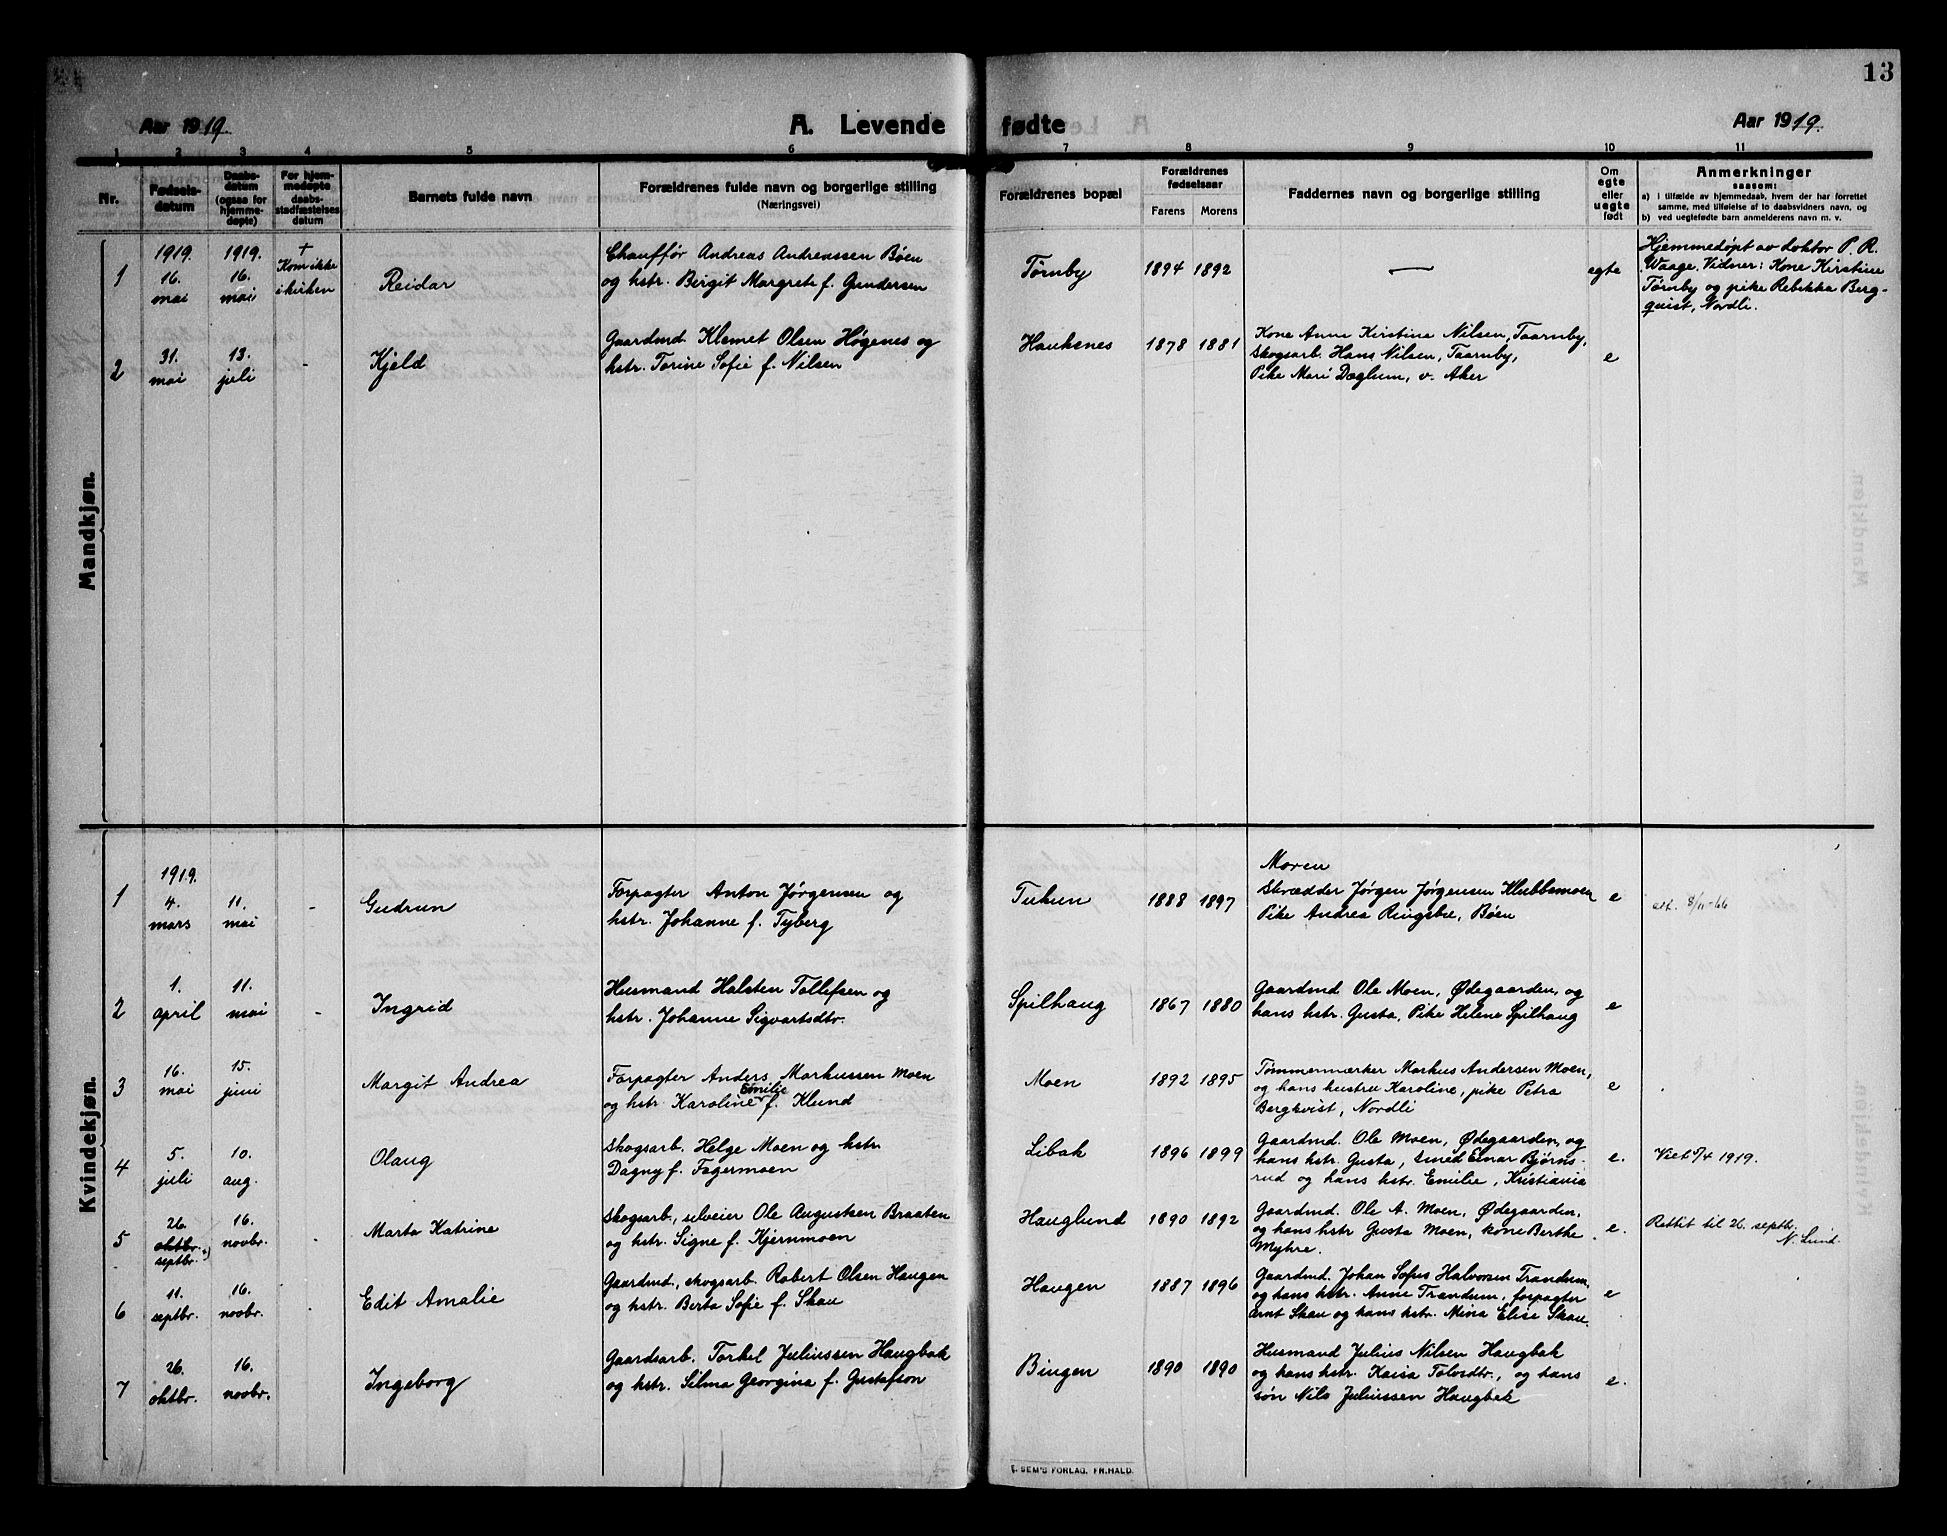 13
Aar 1919.
A. Levende
fødte
Aar 1919.
1 2 3 4 5 6 7 8 9 10 11
Nr.
Fødsels-
datum
Daabs-
datum
(ogsaa for
hjemme-
døpte)
For hjem-
medøpte
daabs-
stadfæstelses
datum
Barnets fulde navn
Forældrenes fulde navn og borgerlige stilling
(Næringsvei)
Forældrenes bopæl
Forældrenes
fødselsaar
Farens Morens
Faddernes navn og borgerlige stilling
Om
egte
eller
uegte
født
Anmerkninger
saasom:
a) i tilfælde av hjemmedaab, hvem der har forrettet
samme, med tilføielse af to daabsvidners navn, og
b) ved uegtefødte barn anmelderens navn m. v.
Mandkjøn.
1
1919.
16.
mai
1919.
16.
mai
+
Kom ikke
i kirken
Reidar
Chauffør Andreas Andreassen Bøen
og hstr. Birgit Margrete f. Gundersen
Tørnby
1894 1892
—
egte
Hjemmedøpt av doktor P. R.
Waage. Vidner: Kone Kirstine
Tørnby og pike Rebekka Berg-
quist, Nordli.
2
31.
mai
13.
juli
-
Kjeld
Gaardmd. Klemet Olsen Høgenes og
hstr. Torine Sofie f. Nilsen
Hauksnes
1878 1881
Kone Anne Kirstine Nilsen, Taarnby,
Skogsarb. Hans Nilsen, Taarnby,
Pike Mari Døglum, v. Aker
e
Kvindekjøn.
1
1919.
4.
mars
11.
mai
-
Gudrun
Forpagter Anton Jørgensen og
hstr. Johanne f. Tyberg
Tukun
1888 1897
Moren
Skrædder Jørgen Jørgensen Klubbemoen
Pike Andrea Ringsbu, Bøen
e
att. 8/11-66
2
1.
april
11.
mai
-
Ingrid
Husmand Halsten Tollefsen og
hstr. Johanne Sigvartsdtr.
Spilhaug
1867 1880
Gaardmd. Ole Moen, Ødegaarden, og
hans hstr. Gusta, Pike Helene Spilhaug
e
3
16.
mai
15.
juni
Margit Andrea
Forpagter Anders Markussen Moen
og hstr. Karoline Emilie f. Klund
Moen
1892 1895
Tømmermærker Markus Andersen Moen,
og hans hustru Karoline, pike Petra
Bergkvist, Nordli
e
4
5.
juli
10.
aug.
-
Olaug
Skogsarb. Helge Moen og hstr.
Dagny f. Fagermoen
Libak
1896 1899
Gaardmd. Ole Moen, Ødegaarden, og
hans hstr. Gusta, smed Einar Bjørns-
rud og hans hstr. Emilie, Kristiania
e.
Viet 5/4 1919.
5
26.
oktbr.
septbr.
16.
novbr.
-
Marta Katrine
Skogsarb., selveier Ole Augustsen Braaten
og hstr. Signe f. Kjernmoen
Hauglund
1890 1892
Gaardmd. Ole A. Moen, Ødegaarden,
og hans hstr Gusta Moen, kone Berthe
Myhre.
e.
Rettit til 26. septbr.
N. Lund.
6
11.
septbr.
16.
novbr.
-
Edit Amalie
Gaardmd., skogsarb. Robert Olsen Haugen
og hstr. Berta Sofie f. Skau
Haugen
1887 1896
Gaardmd. Johan Sofus Halvorsen Trandum,
og hans hstr. Anne Trandum, forpagter
Arnt Skau og hans hstr. Mina Elise Skau.
e
7
26.
oktbr.
16.
novbr.
Ingeborg
Gaardsarb. Torkel Juliussen Haugbak
og hstr. Silma Georgina f. Gustafson
Bingen
1890 1890
Husmand Julius Nilsen Haugbak
og hans hstr. Kaisa Tolvsdtr., og hans
søn Nils Juliussen Haugbak
e.
E. SEM'S FORLAG. FR.HALD.